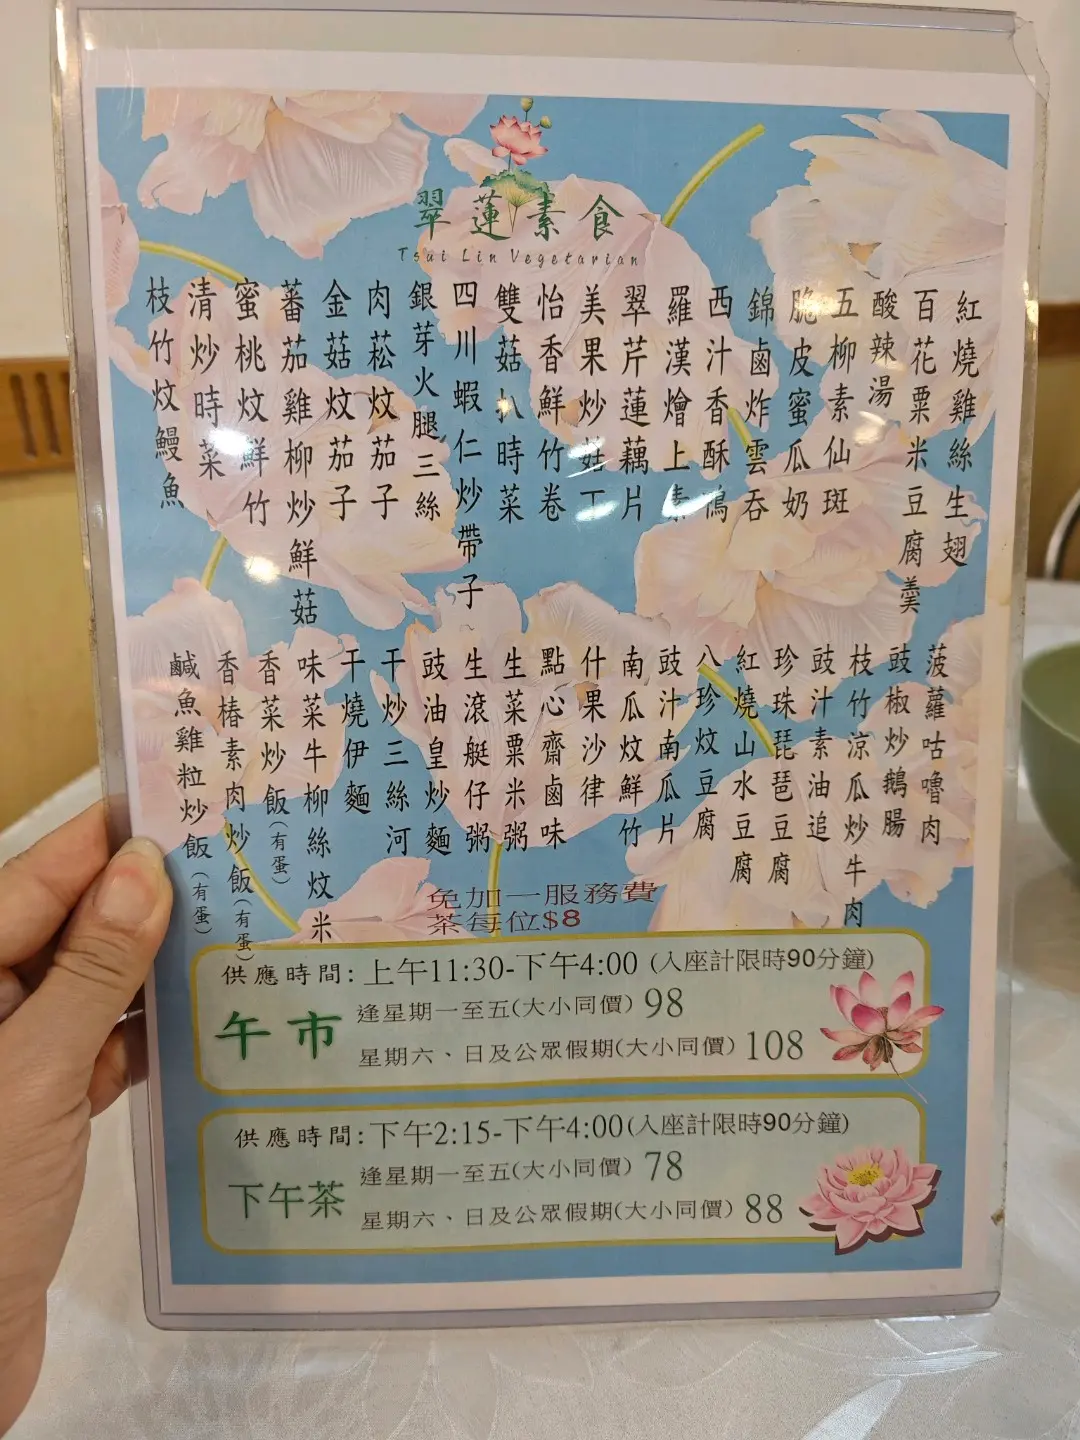 翠蓮素食
Tsui Lin Vegetarian
紅燒雞絲生翅
百花粟米豆腐羹
酸辣湯
五柳素仙斑
脆皮蜜瓜奶
錦鹵炸雲吞
西汁香酥鴿
羅漢燴上素
翠芹蓮藕片
美果炒菇丁
怡香鮮竹卷
雙菇扒時菜
四川蝦仁炒帶子
銀芽火腿三絲
肉菘炆茄子
金菇炆茄子
蕃茄雞柳炒鮮菇
蜜桃炆鮮竹
清炒時菜
枝竹炆鰻魚
菠蘿咕嚕肉
豉椒炒鵝腸
枝竹涼瓜炒牛肉
豉汁素油追
珍珠琵琶豆腐
紅燒山水豆腐
八珍炆豆腐
豉汁南瓜片
南瓜炆鮮竹
什果沙律
點心齋鹵味
生菜粟米粥
生滾艇仔粥
豉油皇炒麵
干炒三絲河
干燒伊麵
味菜牛柳絲炆米
香菜炒飯(有蛋)
香椿素肉炒飯(有蛋)
鹹魚雞粒炒飯(有蛋)
免加一服務費
茶每位$8
供應時間: 上午11:30-下午4:00 (入座計限時90分鐘)
午市
逢星期一至五(大小同價) 98
星期六、日及公眾假期(大小同價) 108
供應時間: 下午2:15-下午4:00(入座計限時90分鐘)
下午茶
逢星期一至五(大小同價) 78
星期六、日及公眾假期(大小同價) 88